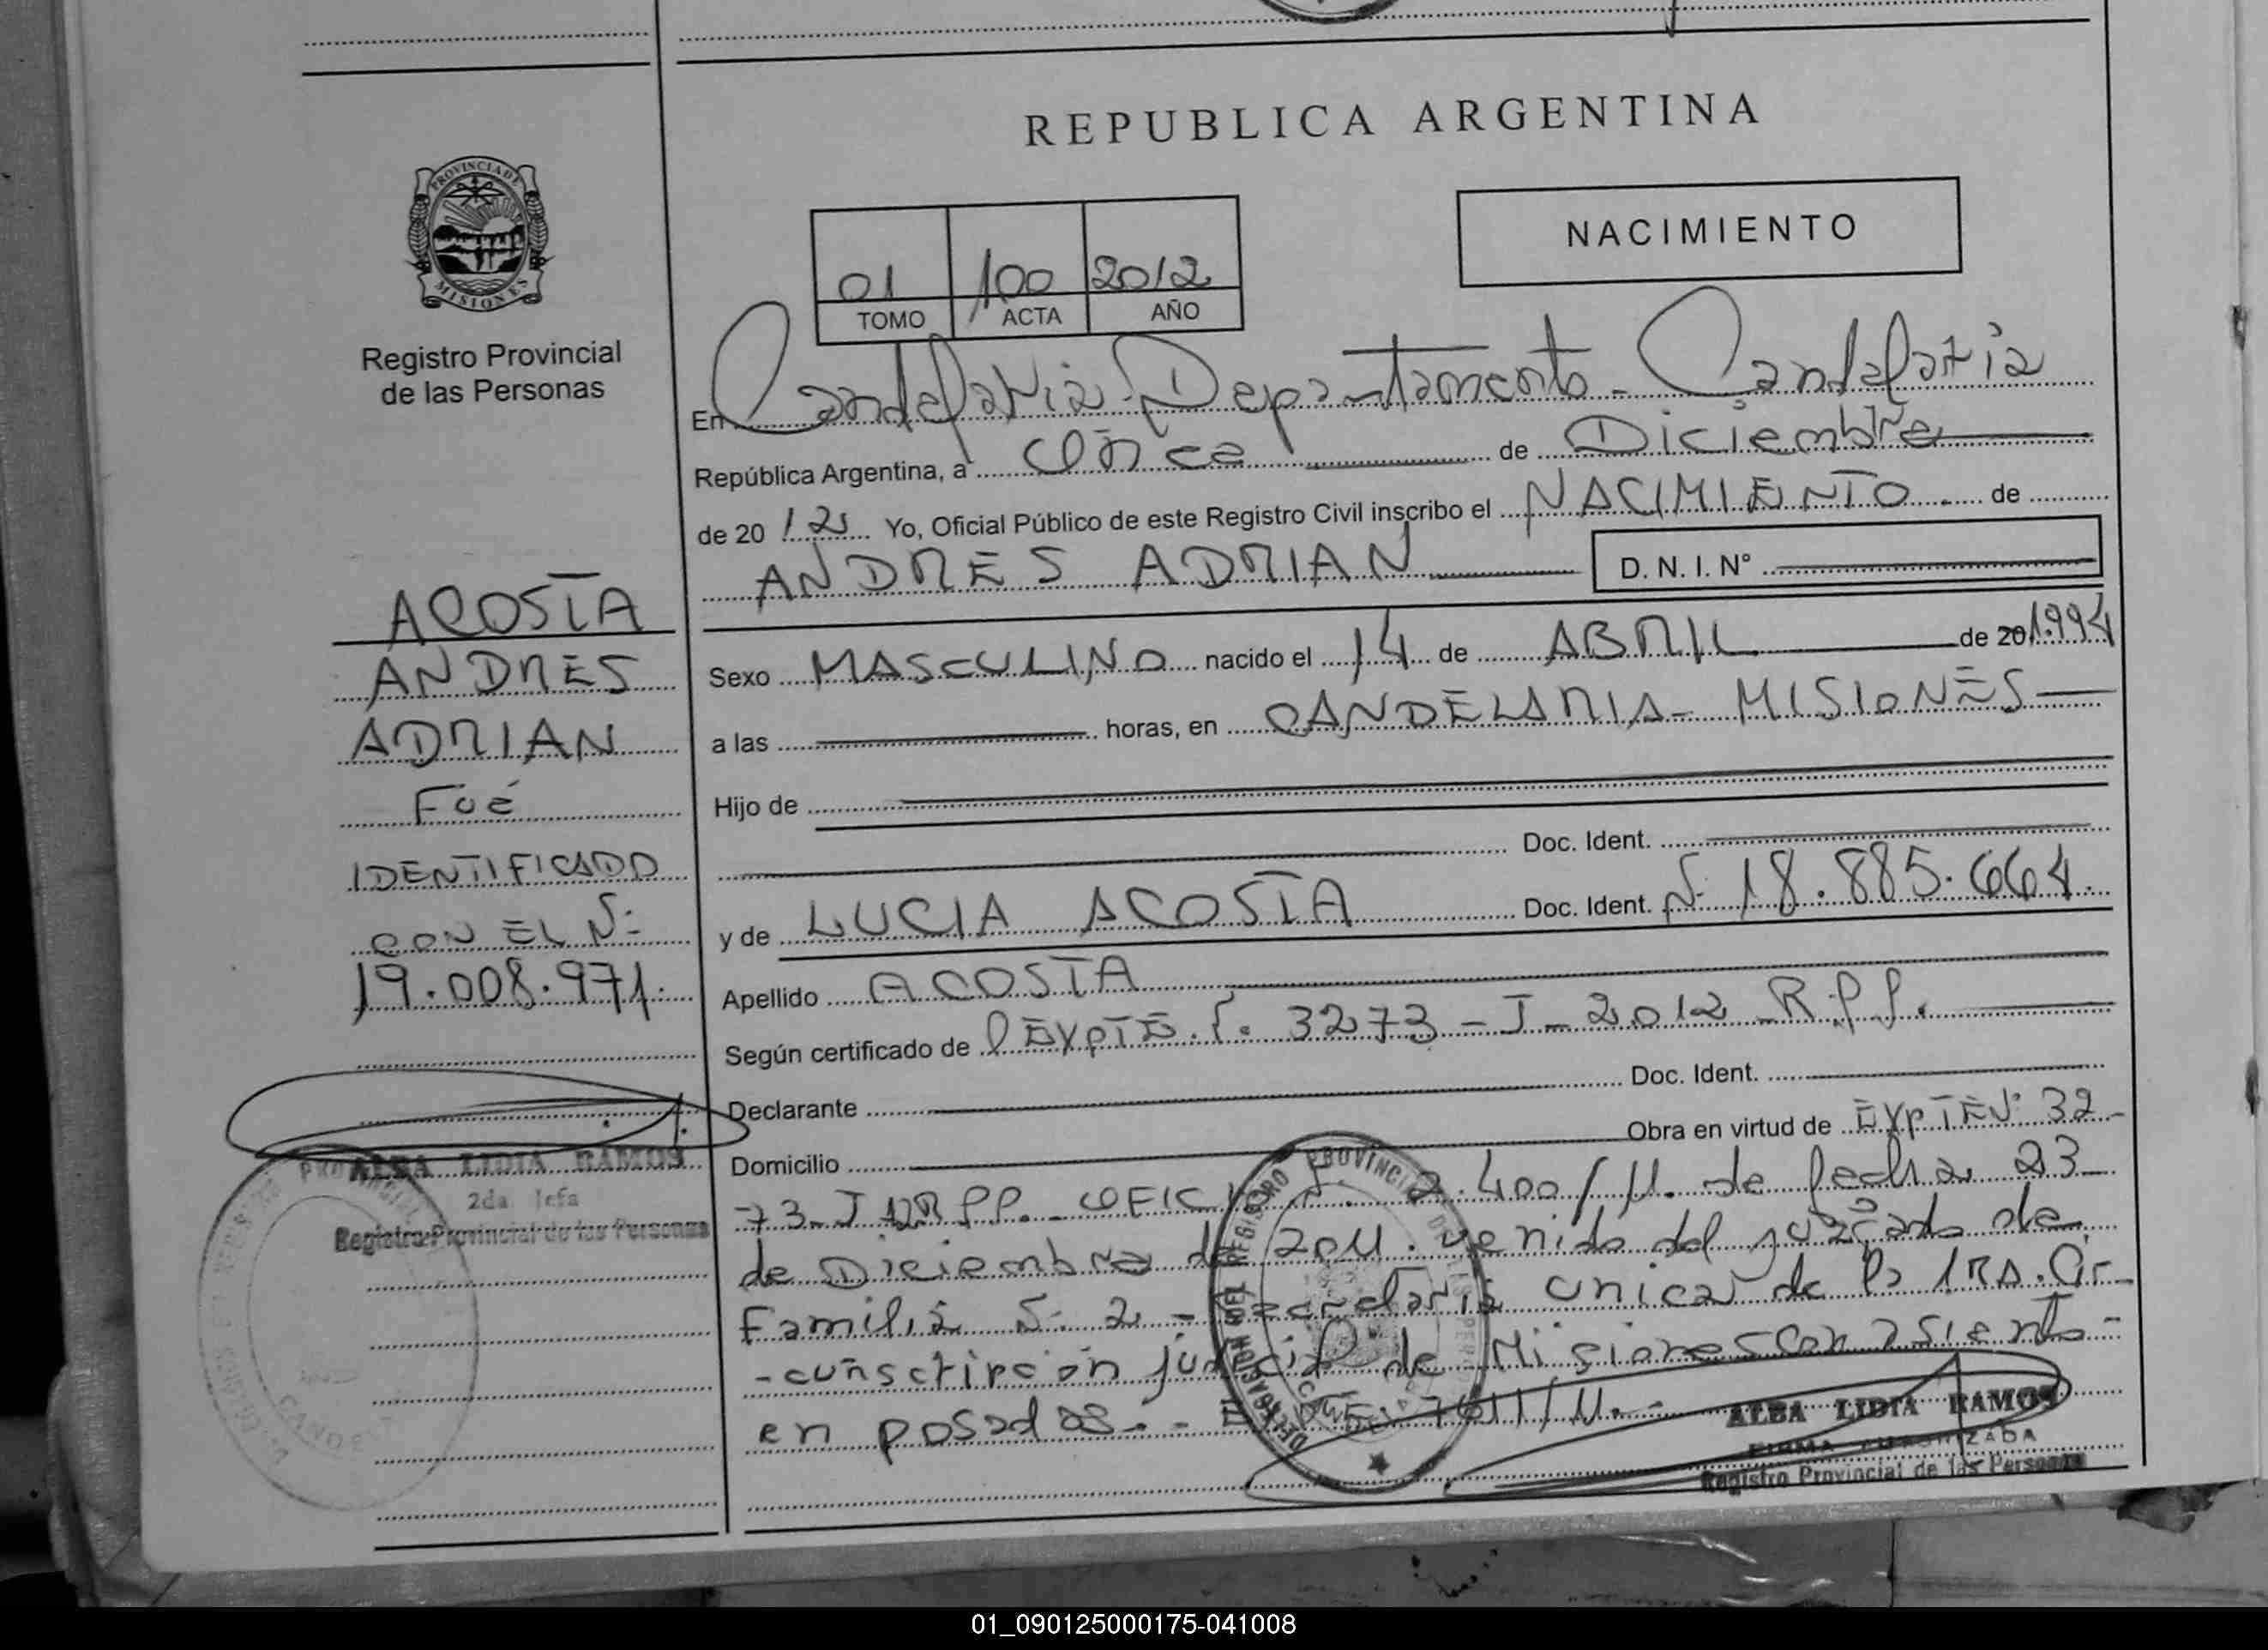 REPUBLICA ARGENTINA
PROVINCIA DE
MISIONES
Registro Provincial
de las Personas
NACIMIENTO
01 100 2012
TOMO ACTA AÑO
En Candelaria - Departamento - Candelaria
República Argentina, a Once de Diciembre
de 20 12 Yo, Oficial Público de este Registro Civil inscribo el NACIMIENTO de
ANDRES ADRIAN D. N. I. N°
Sexo MASCULINO nacido el 14 de ABRIL de 20 1.994
a las horas, en CANDELARIA - MISIONES
Hijo de
Doc. Ident.
y de LUCIA ACOSTA Doc. Ident. N: 18.885.664.
Apellido ACOSTA
Según certificado de EXPTE. 3273 - J - 2012 R.P.P.
Declarante Doc. Ident.
Domicilio Obra en virtud de EXPTE N: 32-
73-J 12 RPP. - OFICIO 2.400/11. de fecha 23
de Diciembre de 2011. venido del juzgado de
Familia N: 2 - Secretaria unica de la 1RA. Cir-
-cunscripción judicial de Misiones con asiento -
en posadas. - 7611/11. -
ALBA LIDIA RAMOS
FIRMA AUTORIZADA
Registro Provincial de las Personas
ACOSTA
ANDRES
ADRIAN
Fué
IDENTIFICADO
CON EL N:
19.008.971.
ALBA LIDIA RAMOS
2da Jefa
Registro Provincial de las Personas
01_090125000175-041008